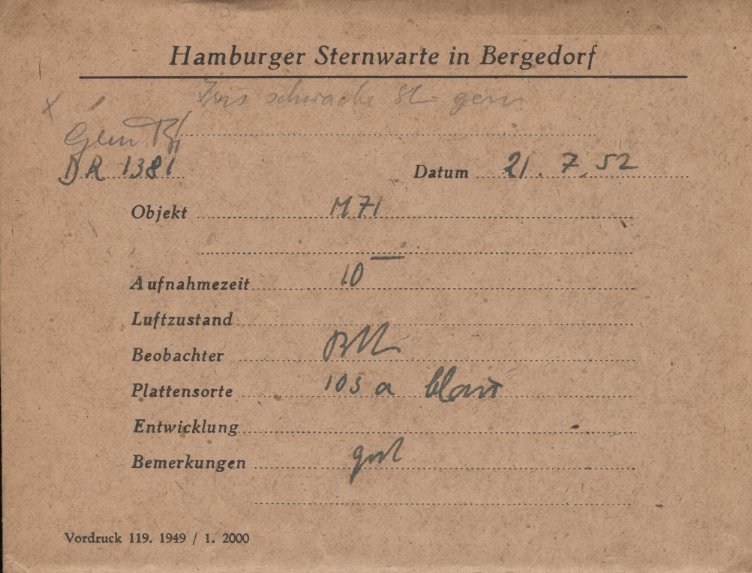 Hamburger Sternwarte in Bergedorf
schwache St. gem
Gem
DR 1381 Datum 21. 7. 52
Objekt M71
Aufnahmezeit 10
Luftzustand
Beobachter
Plattensorte 103 a blau
Entwicklung
Bemerkungen gut
Vordruck 119. 1949 / 1. 2000